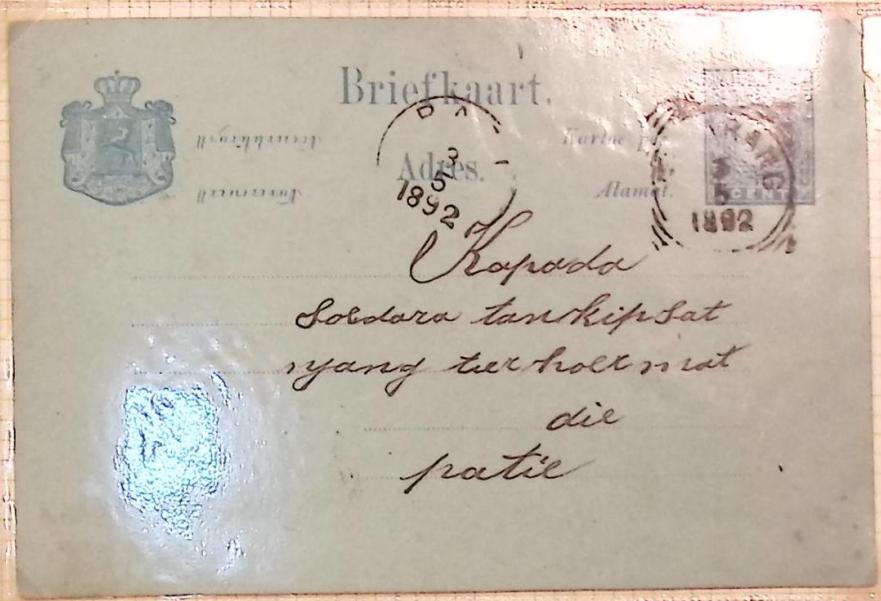 Briefkaart.
Kartoe
Adres.
Alamat.
3
5
1892
RANG
5
1892
CENT
Kapada
Soedara tan kip sat
njang terhoermat
die
patie